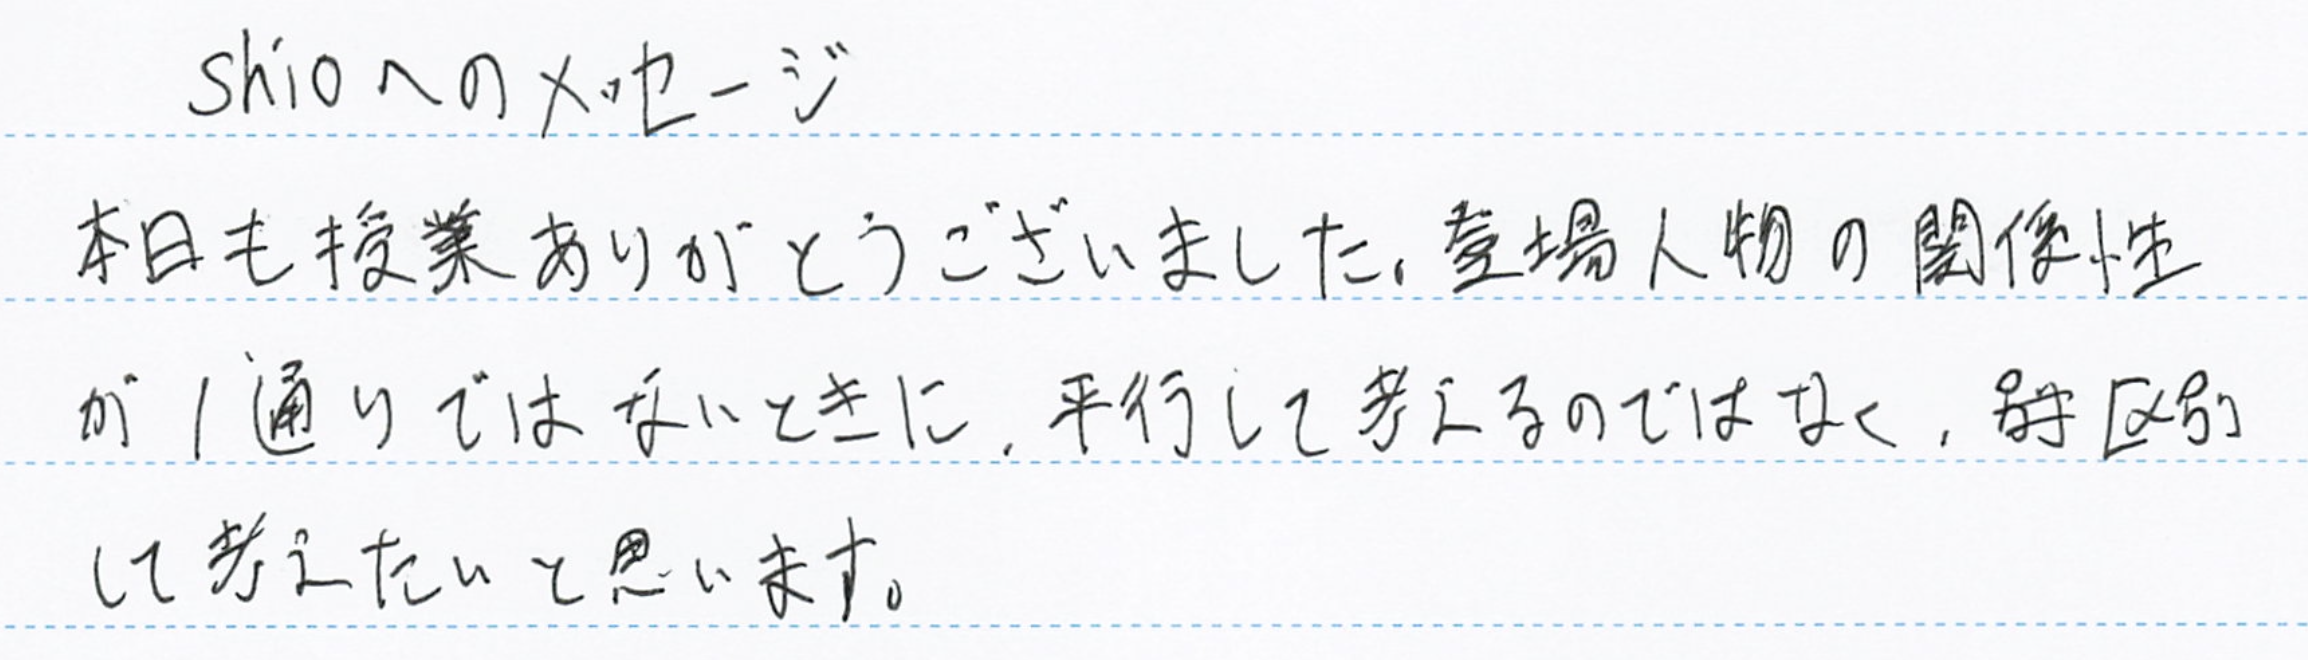 shioへのメッセージ
本日も授業ありがとうございました。登場人物の関係性
が1通りではないときに、平行して考えるのではなく、区別
して考えたいと思います。